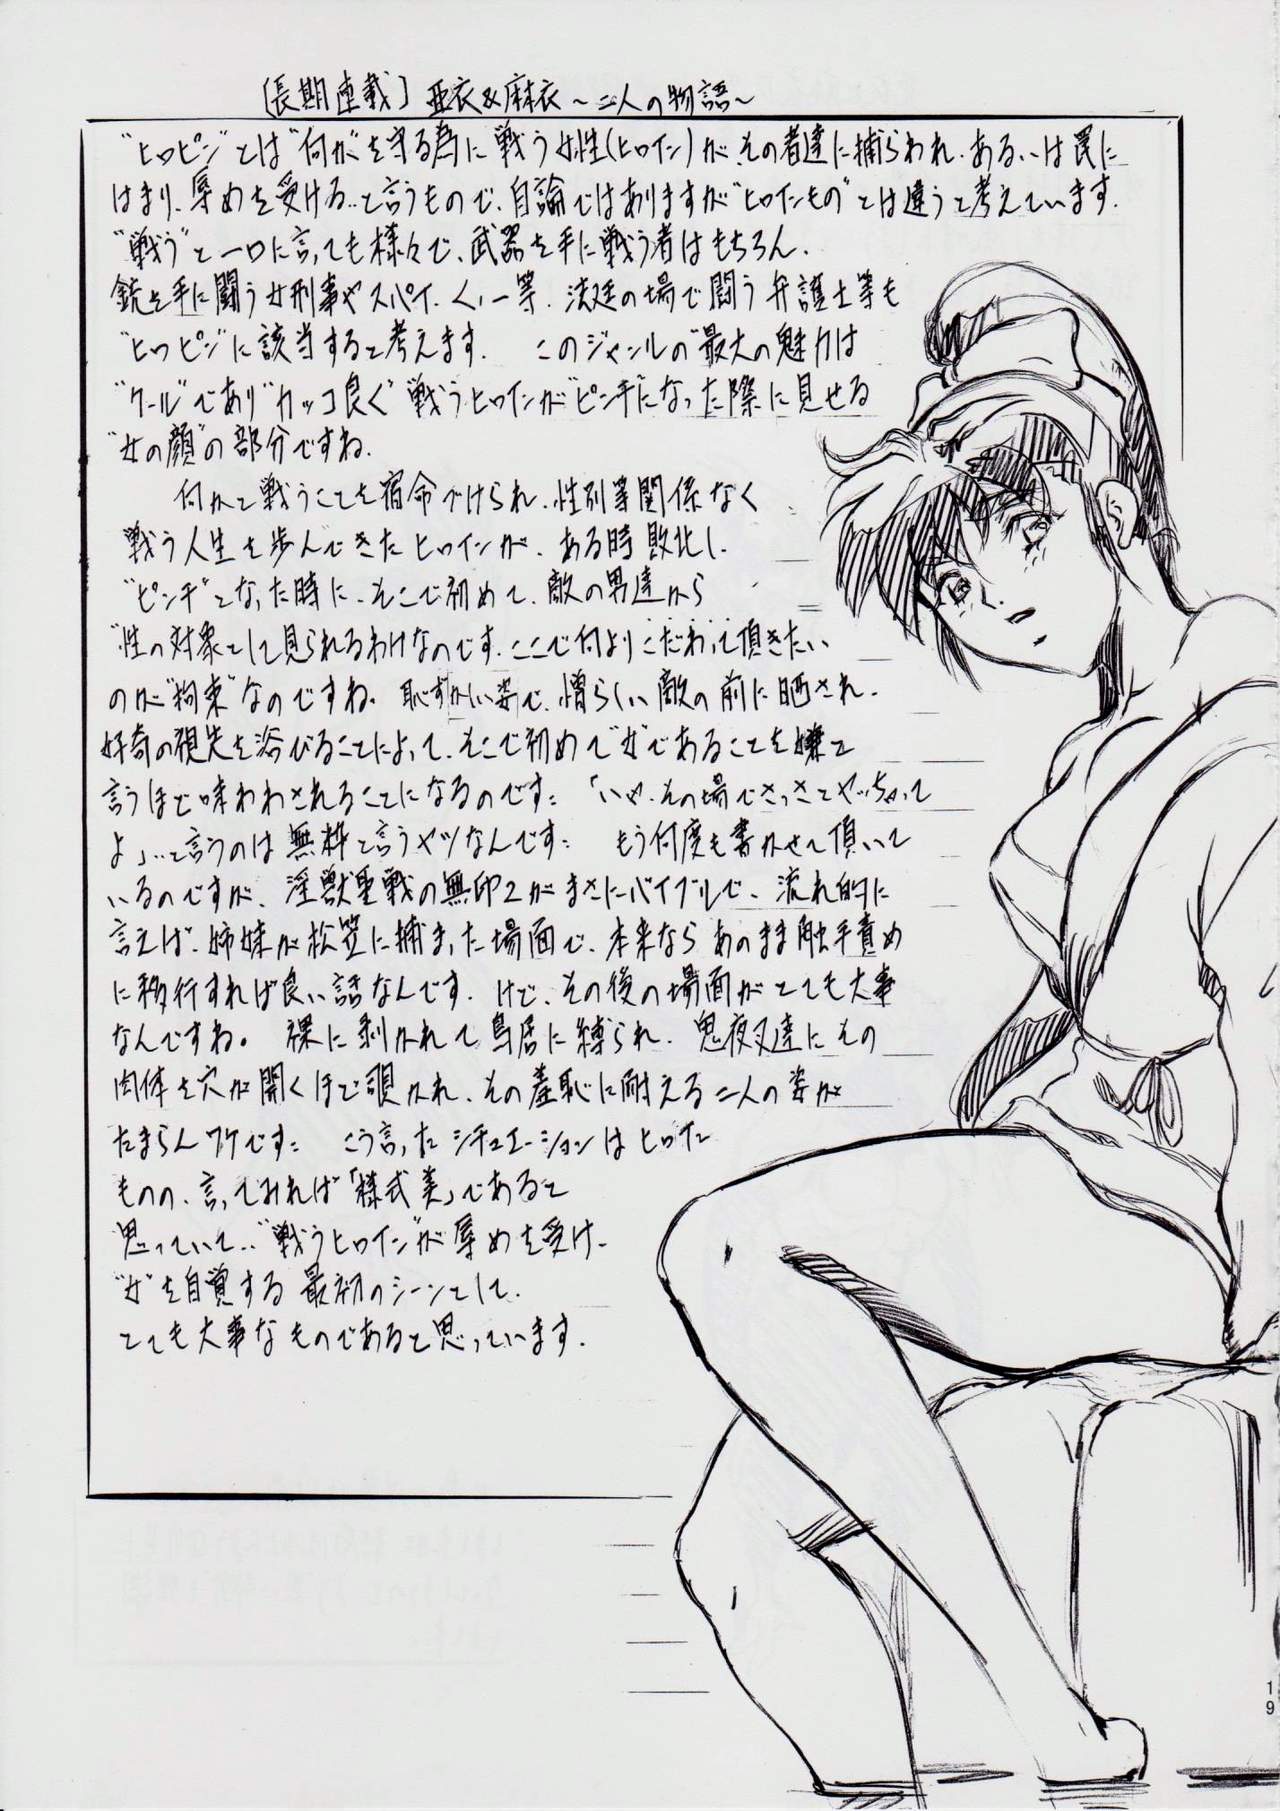 〔長期連載〕亜衣&麻衣～二人の物語～
"ヒロピン"とは"何か"を守る為に戦う女性(ヒロイン)が、その者達に捕らわれ、あるいは罠に
はまり、辱めを受ける‥と言うもので、自論ではありますが"ヒロインもの"とは違うと考えています。
"戦う"と一口に言っても様々で、武器を手に戦う者はもちろん、
銃を手に闘う女刑事やスパイ、くノ一等、法廷の場で闘う弁護士等も
"ヒロピン"に該当すると考えます。 このジャンルの"最大の魅力は
"クール"であり"カッコ良く"戦うヒロインが"ピンチ"になった際に見せる
"女の顔"の部分ですね。
何かと戦うことを宿命づけられ、性別等関係なく
戦う人生を歩んできたヒロインが、ある時敗北し、
"ピンチ"となった時に、そこで初めて、敵の男達から
"性の対象として見られるわけなのです。ここで何よりこだわって頂きたい
のが"拘束"なのですね。恥ずかしい姿で、憎らしい敵の前に晒され、
好奇の視線を浴びることによって、そこで初めて"女"であることを嫌と
言うほど味わわされることになるのです。「いや、その場でさっさとヤッちゃって
よ」‥と言うのは無粋と言うヤツなんです。 もう何度も書かせて頂いて
いるのですが、淫獣聖戦の無印2がまさにバイブルで、流れ的に
言えば、姉妹が松笠に捕まった場面で、本来ならあのまま触手責め
に移行すれば良い話なんです。けど、その後の場面がとても大事
なんですね。 裸に剥かれて鳥居に縛られ、鬼夜叉達にその
肉体を穴が開くほど覗かれ、その羞恥に耐える二人の姿が
たまらんワケです。 こう言ったシチュエーションはヒロイン
ものの、言ってみれば「様式美」であると
思っていて‥"戦うヒロイン"が辱めを受け、
"女"を自覚する最初のシーンとして、
とても大事なものであると思っています。
19